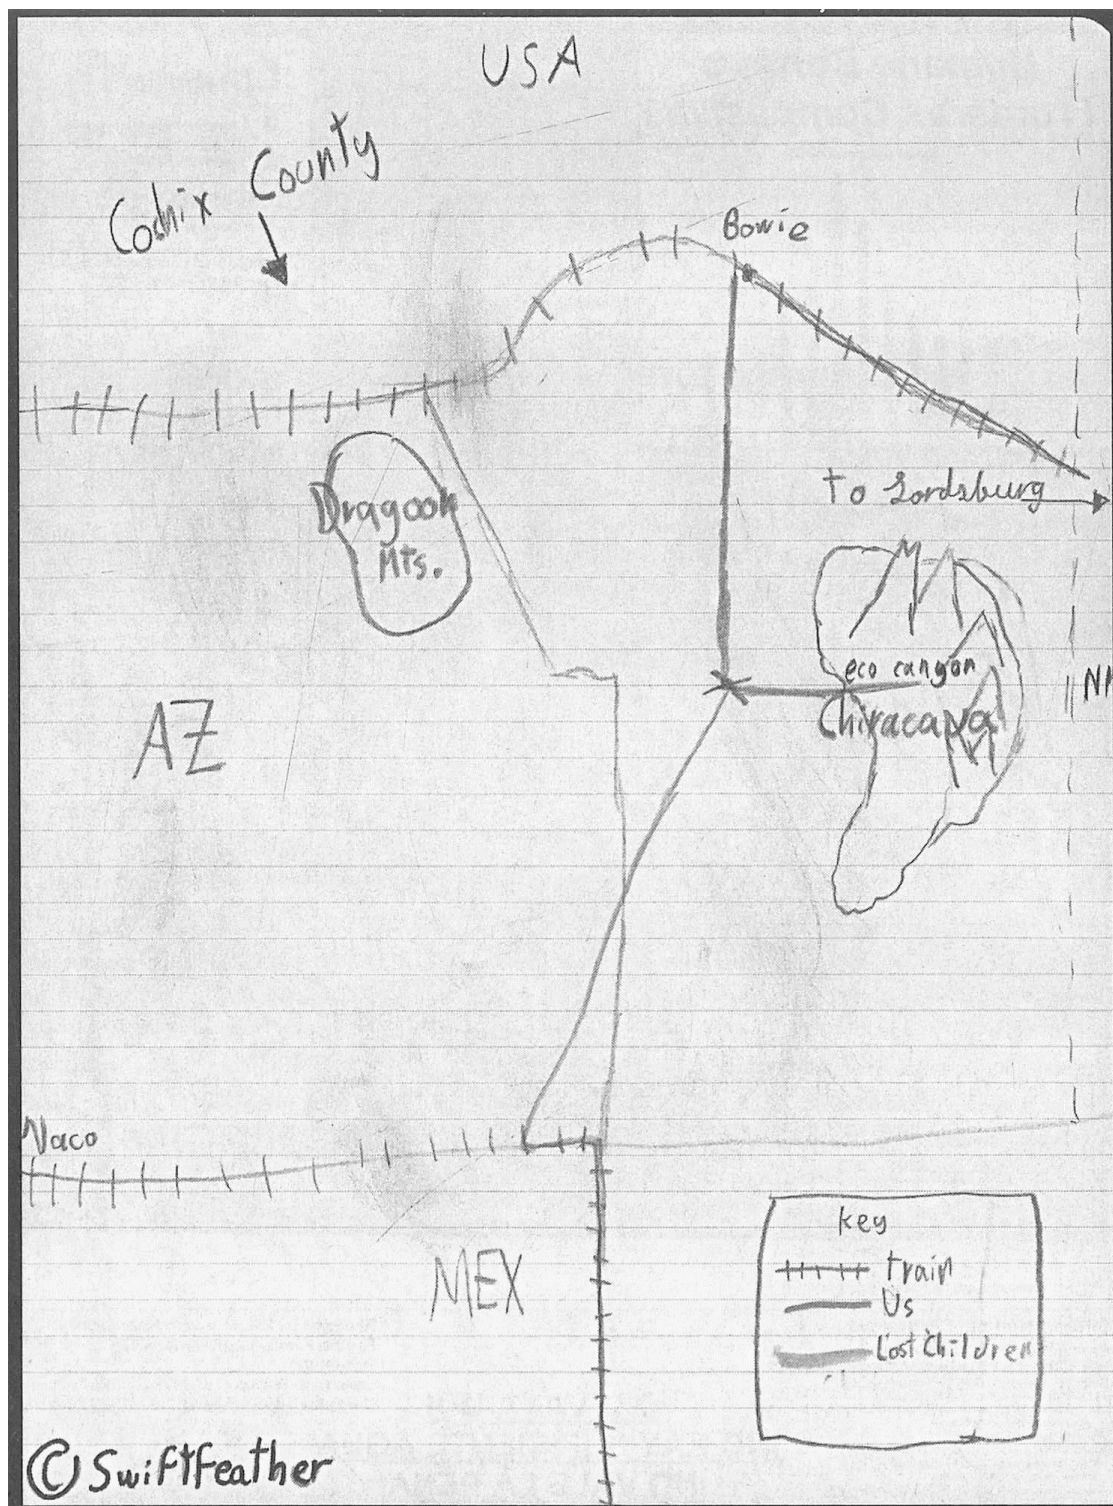 USA
Cochix County
Bowie
to Lordsburg
Dragoon
Mts.
eco canyon
Chiracaua
NM
AZ
Naco
MEX
key
train
Us
Lost Children
© Swiftfeather